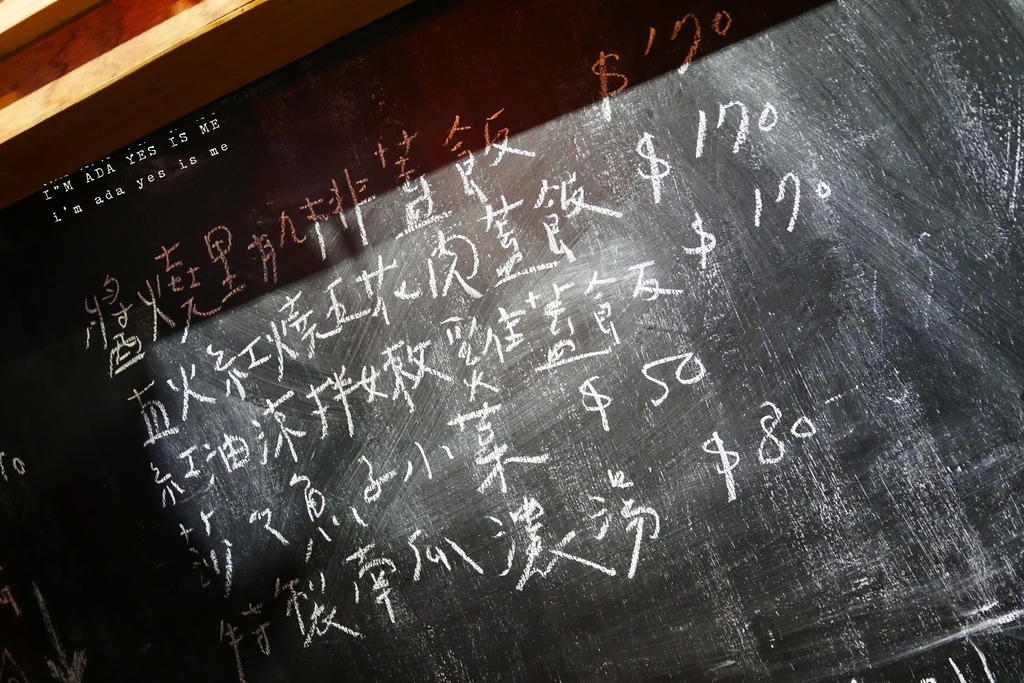 I"M ADA YES IS ME
i'm ada yes is me
醬燒里肌排蓋飯 $170
直火紅燒五花肉蓋飯 $170
紅油涼拌嫩雞蓋飯 $170
魚子小菜 $50
特製南瓜濃湯 $80